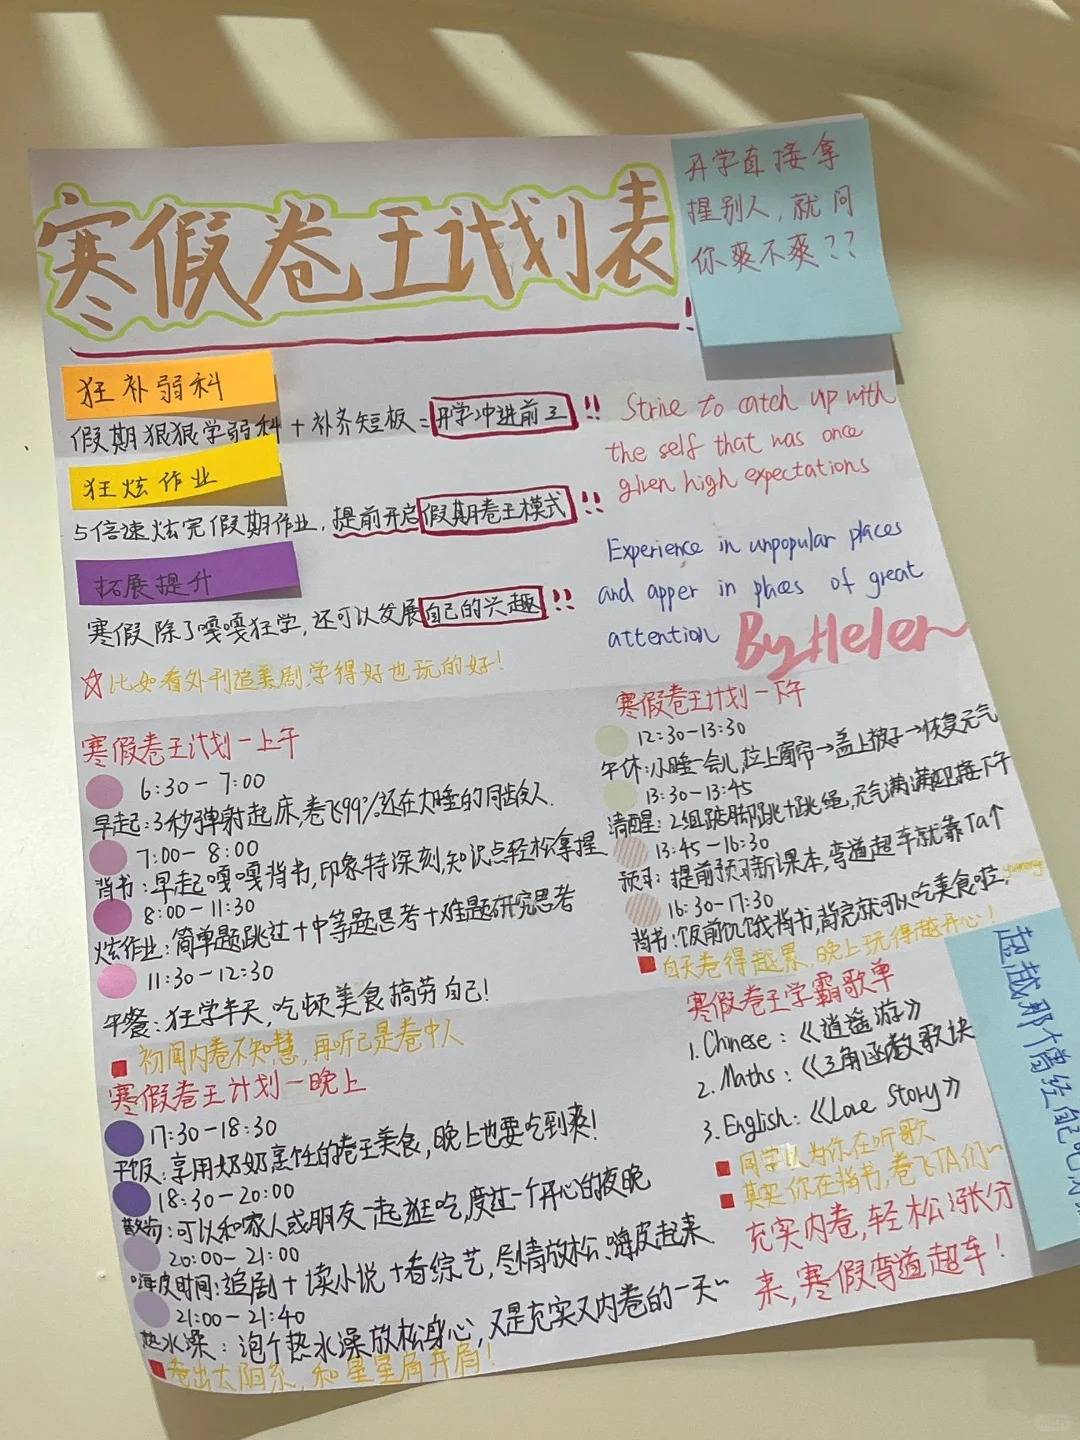 寒假卷王计划表
开学直接拿
捏别人,就问
你爽不爽??
狂补弱科
假期狠狠学弱科+补齐短板=开学冲进前三!!
狂炫作业
5倍速炫完假期作业,提前开启假期卷王模式!!
拓展提升
寒假除了嘎嘎狂学,还可以发展自己的兴趣!!
☆比如看外刊追美剧,学得好也玩的好!
Strive to catch up with
the self that was once
given high expectations
Experience in unpopular places
and apper in places of great
attention
By Helen
寒假卷王计划一上午
6:30-7:00
早起:3秒弹射起床,卷飞99%还在大睡的同龄人.
7:00-8:00
背书:早起嘎嘎背书,印象特深刻,知识点轻松拿捏
8:00-11:30
炫作业:简单题跳过+中等题思考+难题研究思考
11:30-12:30
午餐:狂学半天,吃顿美食犒劳自己!
初闻内卷不知慧,再听已是卷中人
寒假卷王计划一下午
12:30-13:30
午休:小睡一会儿,拉上窗帘→盖上被子→恢复元气
13:30-13:45
清醒:2组踮脚跳+跳绳,元气满满迎接下午
13:45-16:30
预习:提前预习新课本,弯道超车就靠Ta↑
16:30-17:30
背书:饭前饥饿背书,背完就可以吃美食啦,
白天卷得越累,晚上玩得越开心!
寒假卷王计划一晚上
17:30-18:30
干饭:享用奶奶烹饪的卷王美食,晚上也要吃到爽!
18:30-20:00
散步:可以和家人或朋友一起逛吃,度过一个开心的夜晚
20:00-21:00
嗨皮时间:追剧+读小说+看综艺,尽情放松,嗨皮起来
21:00-21:40
热水澡:泡个热水澡放松身心,又是充实又内卷的一天~
卷出太阳系,和星星肩并肩!
寒假卷王学霸歌单
1.Chinese:《逍遥游》
2.Maths:《三角函数歌诀
3.English:《Love Story》
同学以为你在听歌
其实你在背书,卷飞TA们~
充实内卷,轻松涨分
来,寒假弯道超车!
超越那个曾经